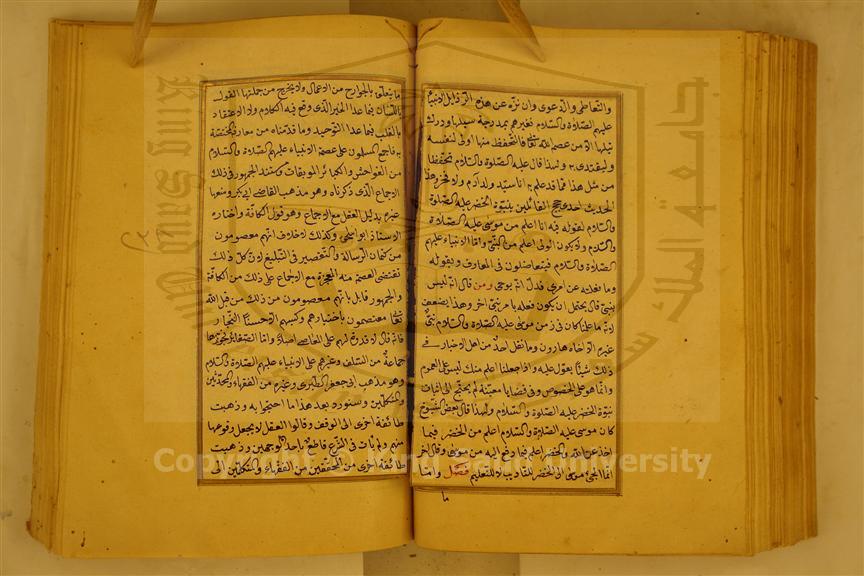 والتعاطي والدعوى وان نزه عن هذه الرذايل الانبيآء
عليهم الصلاة والسلام فغيرهم بمدرجة سبيلها ودرك
نيلها الا من عصمه الله تعالى فالتحفظ منها اولى لنفسه
وليقتدى به ولهذا قال عليه الصلوة والسلام تحفظا
من مثل هذا مما قد علم به انا سيد ولد آدم ولا فخر وهذا
الحديث احدى حجج القائلين بنبوة الخضر عليه الصلوة
والسلام لقوله فيه انا اعلم من موسى عليه الصلاة
والسلام ولا يكون الولى اعلم من النبي واما الانبياء عليهم
الصلاة والسلام فيتفاضلون في المعارف وبقوله
وما فعلته عن امري فدل انه بوحى ومن قال انه ليس
بنبي قال يحتمل ان يكون فعله بامر نبي آخر وهذا يضعف
لانه ما علمنا كان في زمن موسى عليه الصلاة والسلام نبي
غيره الا اخاه هارون وما نقل احد من اهل الاخبار في
ذلك شيئا يعول عليه واذا جعلنا اعلم منك ليس على العموم
وانما هو على الخصوص وفي قضايا معينة لم يحتج الى اثبات
نبوة الخضر عليه الصلوة والسلام ولهذا قال بعض الشيوخ
كان موسى عليه الصلاة والسلام اعلم من الخضر فيما
اخذ عن الله والخضر اعلم فيما دفع اليه من موسى وقال آخر
انما الجئ موسى الى الخضر للتاديب لا للتعليم فصل واما
ما
ما يتعلق بالجوارح من الاعمال ولا يخرج من جملتها القول
باللسان فيما عدا الخبر الذي وقع فيه الكلام ولا الاعتقاد
بالقلب فيما عدا التوحيد وما قدمناه من معارفه المختصة
به فاجمع المسلمون على عصمة الانبياء عليهم الصلاة والسلام
من الفواحش والكبائر الموبقات ومستند الجمهور في ذلك
الاجماع الذي ذكرناه وهو مذهب القاضي ابي بكر ومنعها
غيره بدليل العقل مع الاجماع وهو قول الكافة واختاره
الاستاذ ابو اسحق وكذلك لا خلاف انهم معصومون
من كتمان الرسالة والتقصير في التبليغ لان كل ذلك
تقتضى العصمة منه المعجزة مع الاجماع على ذلك من الكافة
والجمهور قايل بانهم معصومون من ذلك من قبل الله
تعالى معتصمون باختيارهم وكسبهم الا حسينا النجار
فانه قال لا قدرة لهم على المعاصي اصلا واما الصغاير فجوزها
جماعة من السلف وغيرهم على الانبياء عليهم الصلاة والسلام
وهو مذهب ابي جعفر الطبري وغيره من الفقهاء والمحدثين
والمتكلمين وسنورد بعد هذا ما احتجوا به وذهبت
طائفة اخرى الى الوقف وقالوا العقل لا يحيل وقوعها
منهم ولم يات في الشرع قاطع باحد الوجهين وذهبت
طائفة اخرى من المحققين من الفقهاء والمتكلمين الى
جامعة الملك سعود
King Saud University
Copyright © King Saud University